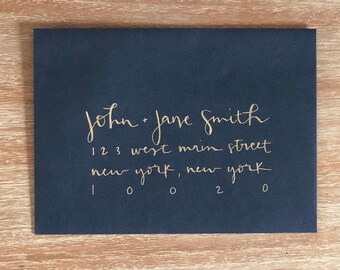 John + Jane Smith
123 west main street
new york, new york
10020